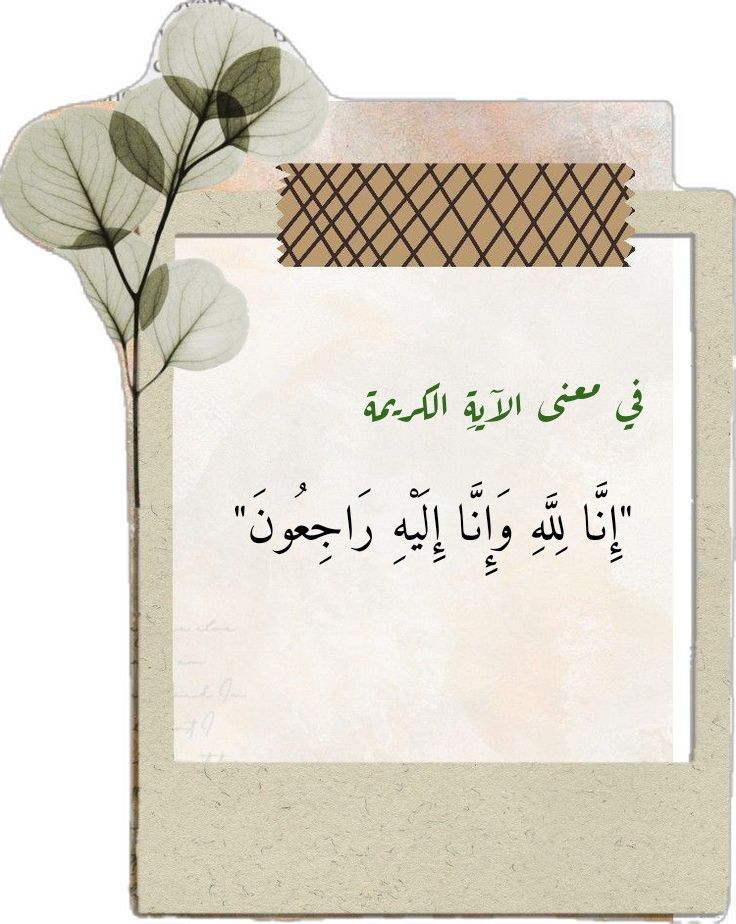 في معنى الآيةِ الكريمة
"إِنَّا لِلَّهِ وَإِنَّا إِلَيْهِ رَاجِعُونَ"